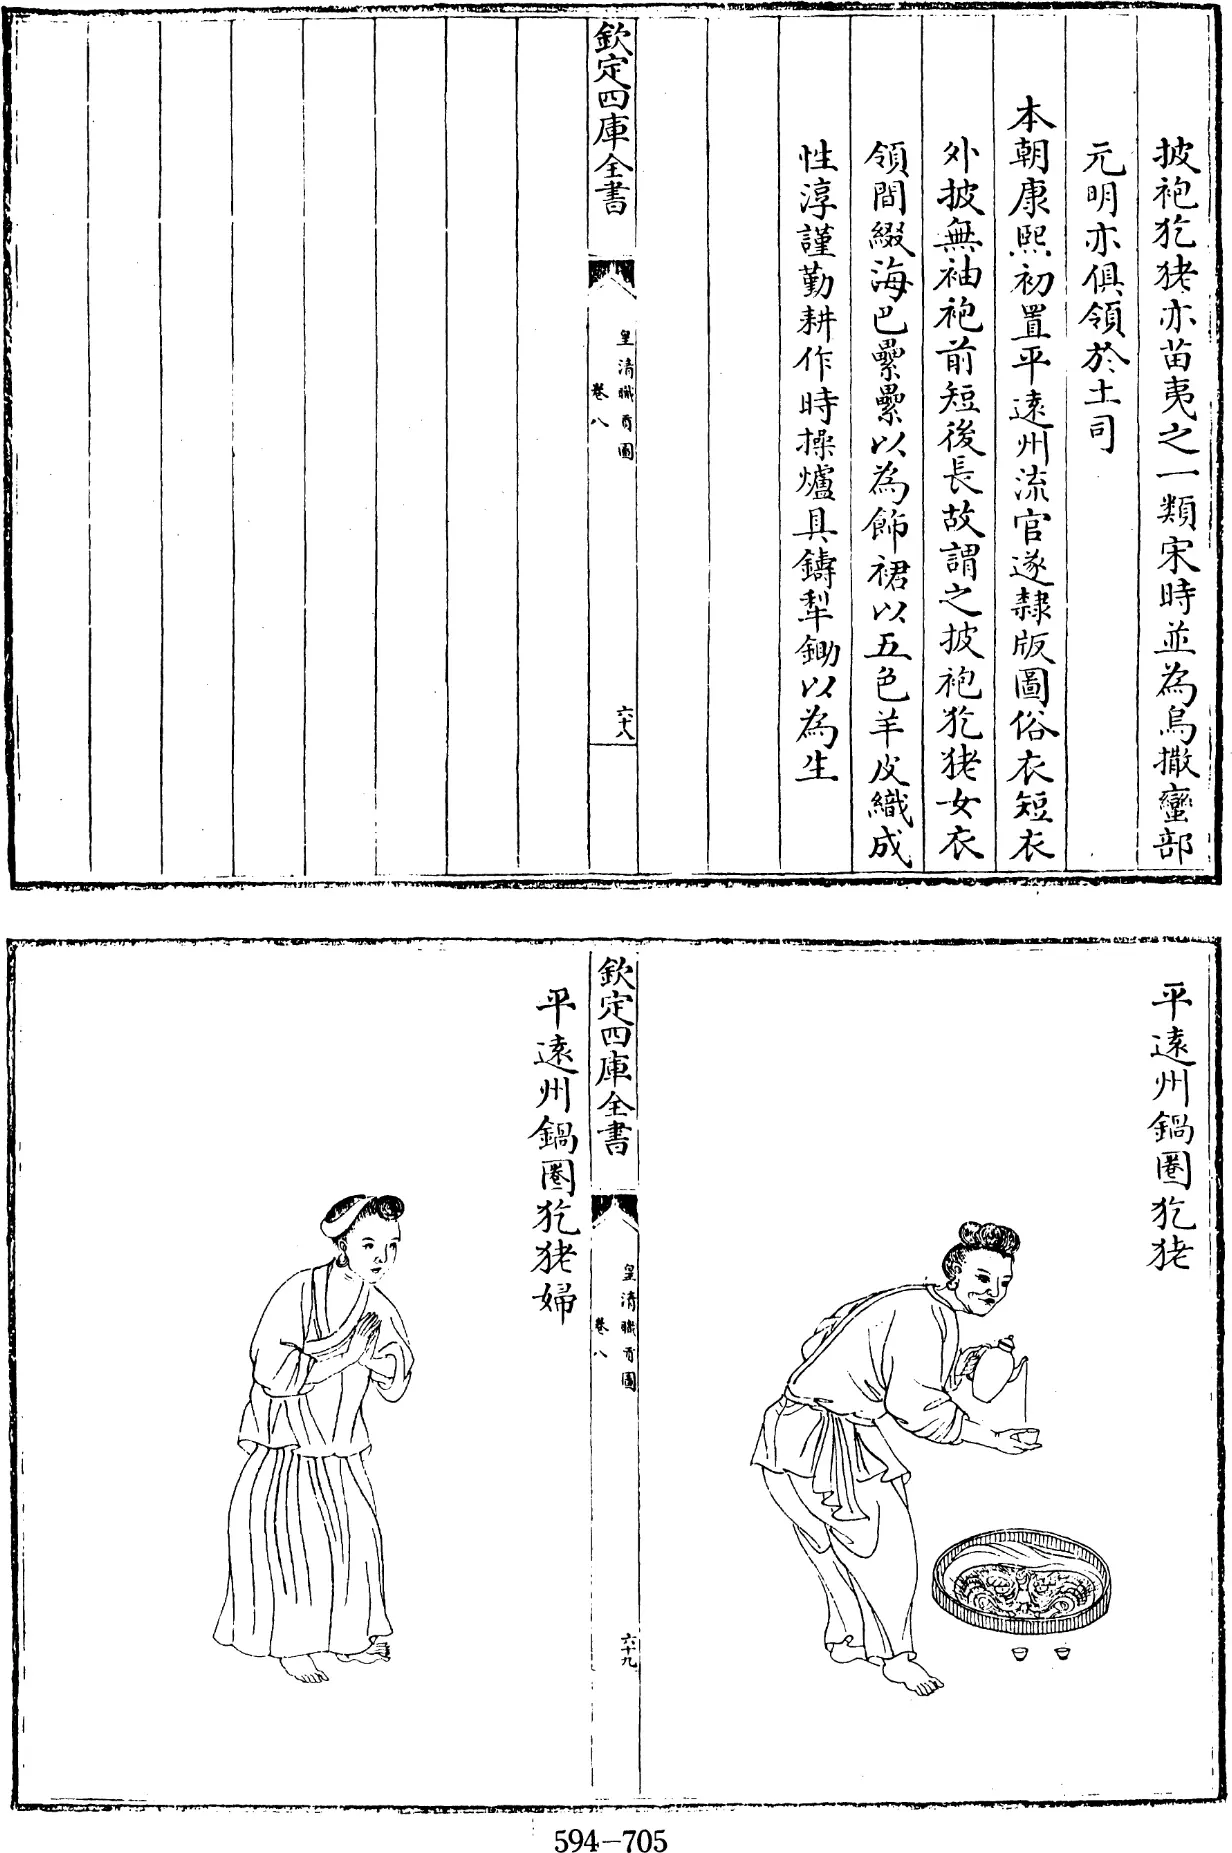 披袍犵狫亦苗夷之一類宋時並為烏撒蠻部
元明亦俱領於土司
本朝康熙初置平遠州流官遂隸版圖俗衣短衣
外披無袖袍前短後長故謂之披袍犵狫女衣
領間綴海巴纍纍以為飾裙以五色羊皮織成
性淳謹勤耕作時操爐具鑄犁鋤以為生
欽定四庫全書
皇清職貢圖
卷八
六十八
平遠州鍋圈犵狫
欽定四庫全書
皇清職貢圖
卷八
六十九
平遠州鍋圈犵狫婦
594-705